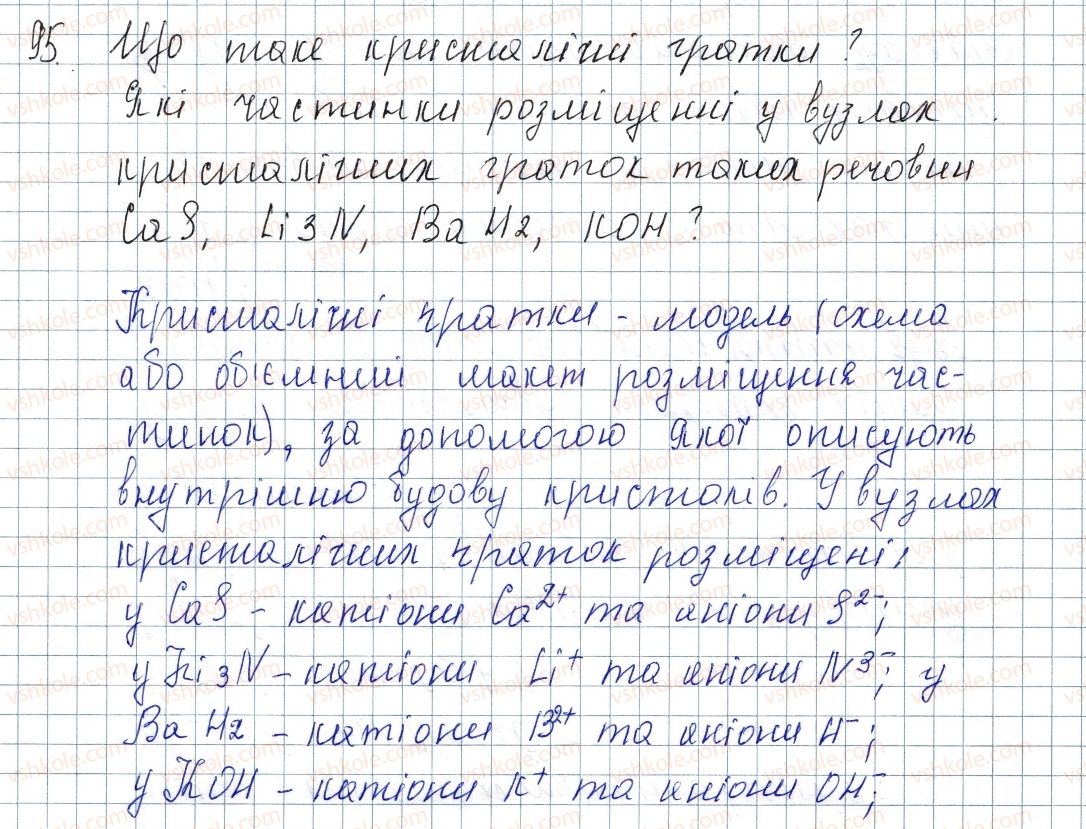 95. Що таке кристалічні гратки?
Які частинки розміщенні у вузлах
кристалічних граток таких речовин
CaS, Li3N, BaH2, KOH?
Кристалічні гратки - модель (схема
або об'ємний макет розміщення час-
тинок), за допомогою якої описують
внутрішню будову кристалів. У вузлах
кристалічних граток розміщені:
у CaS - катіони Ca2+ та аніони S2-;
у Li3N - катіони Li+ та аніони N3-; у
BaH2 - катіони B2+ та аніони H-;
у KOH - катіони K+ та аніони OH-;